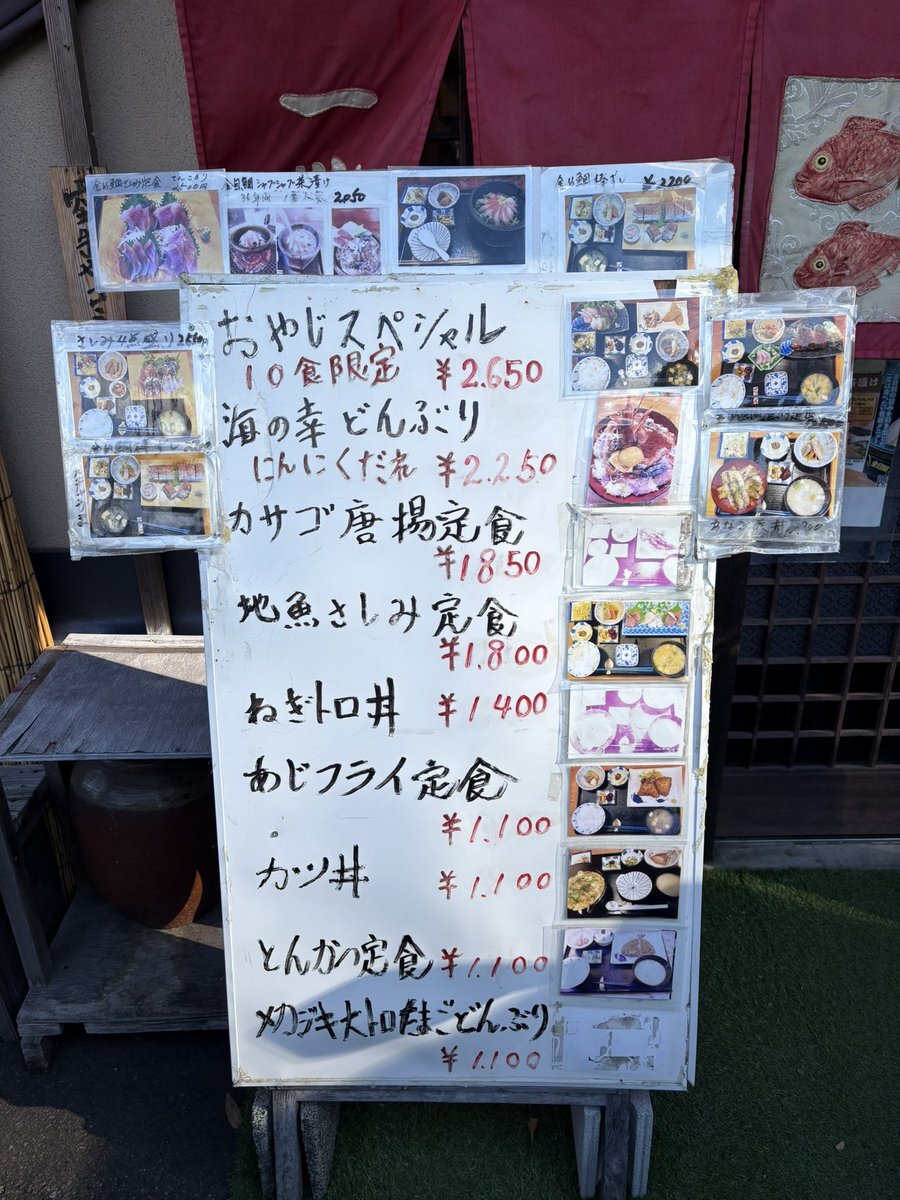 金目鯛さしみ定食
金目鯛シャブシャブ茶漬け
2050
¥2200
さしみ4点盛り
おやじスペシャル
10食限定 ¥2.650
海の幸どんぶり
にんにくだれ ¥2.250
カサゴ唐揚定食
¥1850
地魚さしみ定食
¥1.800
ねぎトロ丼 ¥1400
あじフライ定食
¥1.100
カツ丼 ¥1.100
とんかつ定食 ¥1.100
メカジキ大トロたまごどんぶり
¥1.100